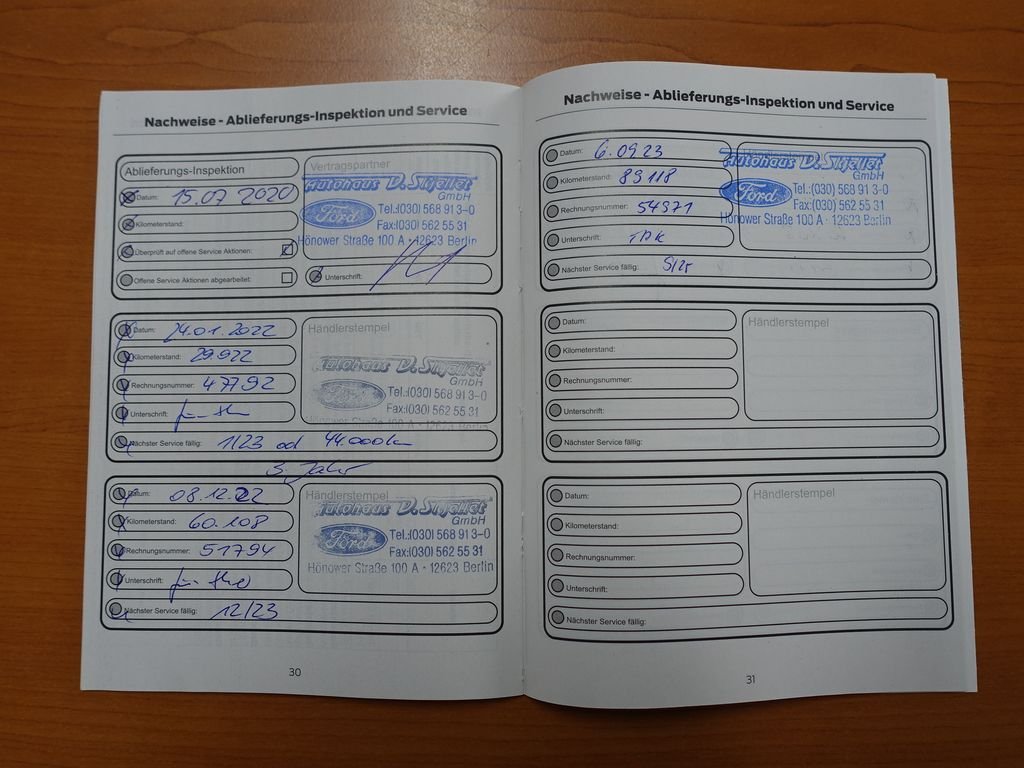 Nachweise - Ablieferungs-Inspektion und Service
Ablieferungs-Inspektion
Datum: 15.07 2020
Kilometerstand:
Überprüft auf offene Service Aktionen:
Offene Service Aktionen abgearbeitet:
Vertragspartner
Autohaus D. Skjellet
GmbH
Ford
Tel.:(030) 568 91 3-0
Fax:(030) 562 55 31
Hönower Straße 100 A · 12623 Berlin
Unterschrift:
Datum: 24.01.2022
Kilometerstand: 29.922
Rechnungsnummer: 47792
Unterschrift:
Händlerstempel
Autohaus D. Skjellet
GmbH
Ford
Tel.:(030) 568 91 3-0
Fax:(030) 562 55 31
Hönower Straße 100 A · 12623 Berlin
Nächster Service fällig: 1/23 od 44.000km
3. Jahr
Datum: 08.12.22
Kilometerstand: 60.108
Rechnungsnummer: 51794
Unterschrift:
Händlerstempel
Autohaus D. Skjellet
GmbH
Ford
Tel.:(030) 568 91 3-0
Fax:(030) 562 55 31
Hönower Straße 100 A · 12623 Berlin
Nächster Service fällig: 12/23
30
Nachweise - Ablieferungs-Inspektion und Service
Datum: 6.09.23
Kilometerstand: 89118
Rechnungsnummer: 54971
Unterschrift:
Händlerstempel
Autohaus D. Skjellet
GmbH
Ford
Tel.:(030) 568 91 3-0
Fax:(030) 562 55 31
Hönower Straße 100 A · 12623 Berlin
Nächster Service fällig:
Datum:
Kilometerstand:
Rechnungsnummer:
Unterschrift:
Händlerstempel
Nächster Service fällig:
Datum:
Kilometerstand:
Rechnungsnummer:
Unterschrift:
Händlerstempel
Nächster Service fällig:
31